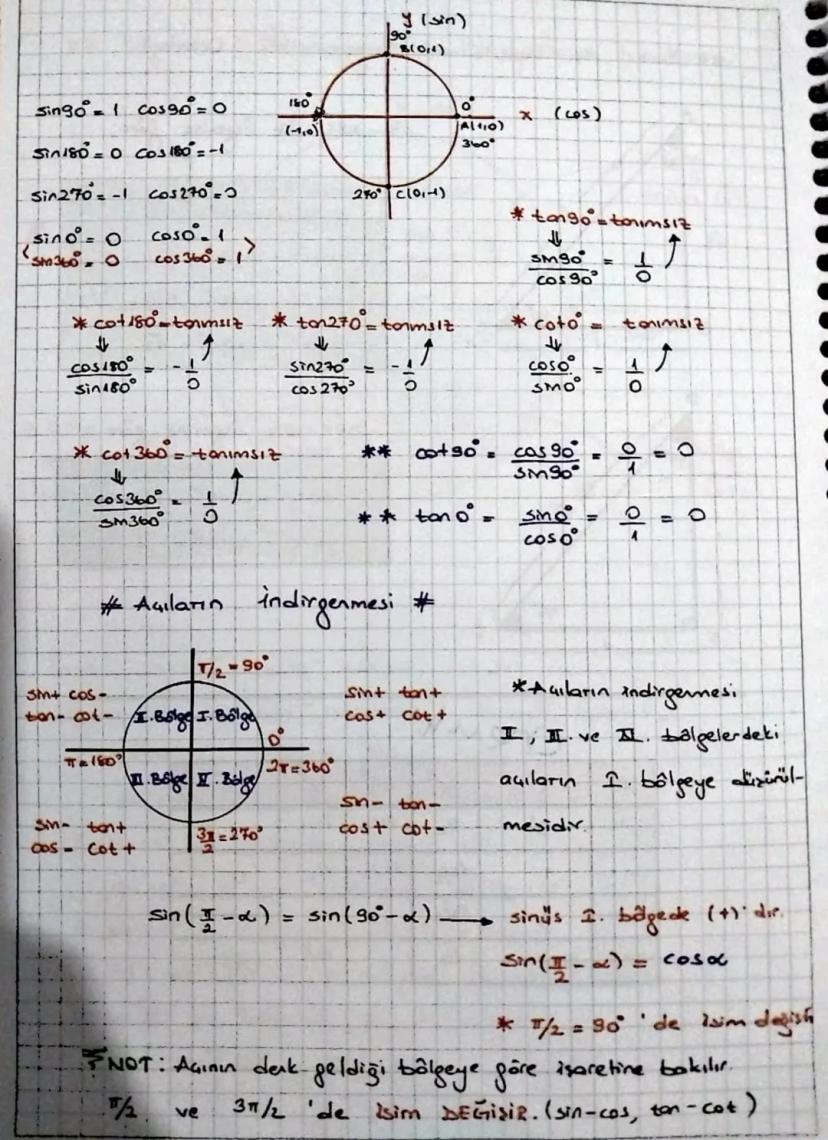 y (sin)
90°
B(0,1)
sin90° = 1 cos90° = 0
180°
(-1,0)
0°
A(1,0)
360°
x (cos)
sin180° = 0 cos180° = -1
sin270° = -1 cos270° = 0
270° C(0,-1)
sin0° = 0 cos0° = 1
<sin360° = 0 cos360° = 1>
* tan90° = tanımsız
⇓
sin90°/cos90° = 1/0
* cot180° = tanımsız * tan270° = tanımsız * cot0° = tanımsız
⇓ ⇓ ⇓
cos180°/sin180° = -1/0 sin270°/cos270° = -1/0 cos0°/sin0° = 1/0
* cot360° = tanımsız ** cot90° = cos90°/sin90° = 0/1 = 0
⇓
cos360°/sin360° = 1/0 ** tan0° = sin0°/cos0° = 0/1 = 0
# Açıların İndirgenmesi #
π/2 = 90°
sin+ cos-
tan- cot-
II. Bölge I. Bölge
sin+ tan+
cos+ cot+
0°
π = 180°
2π = 360°
III. Bölge IV. Bölge
sin- tan+
cos- cot+
3π/2 = 270°
sin- tan-
cos+ cot-
* Açıların indirgenmesi
II, III. ve IV. bölgelerdeki
açıların I. bölgeye düşürül-
mesidir.
sin(π/2 - α) = sin(90° - α) → sinüs I. bölgede (+)'dır.
sin(π/2 - α) = cosα
* π/2 = 90° 'de isim değişti
NOT: Açının denk geldiği bölgeye göre işaretine bakılır.
π/2 ve 3π/2 'de isim DEĞİŞİR. (sin-cos, tan-cot)